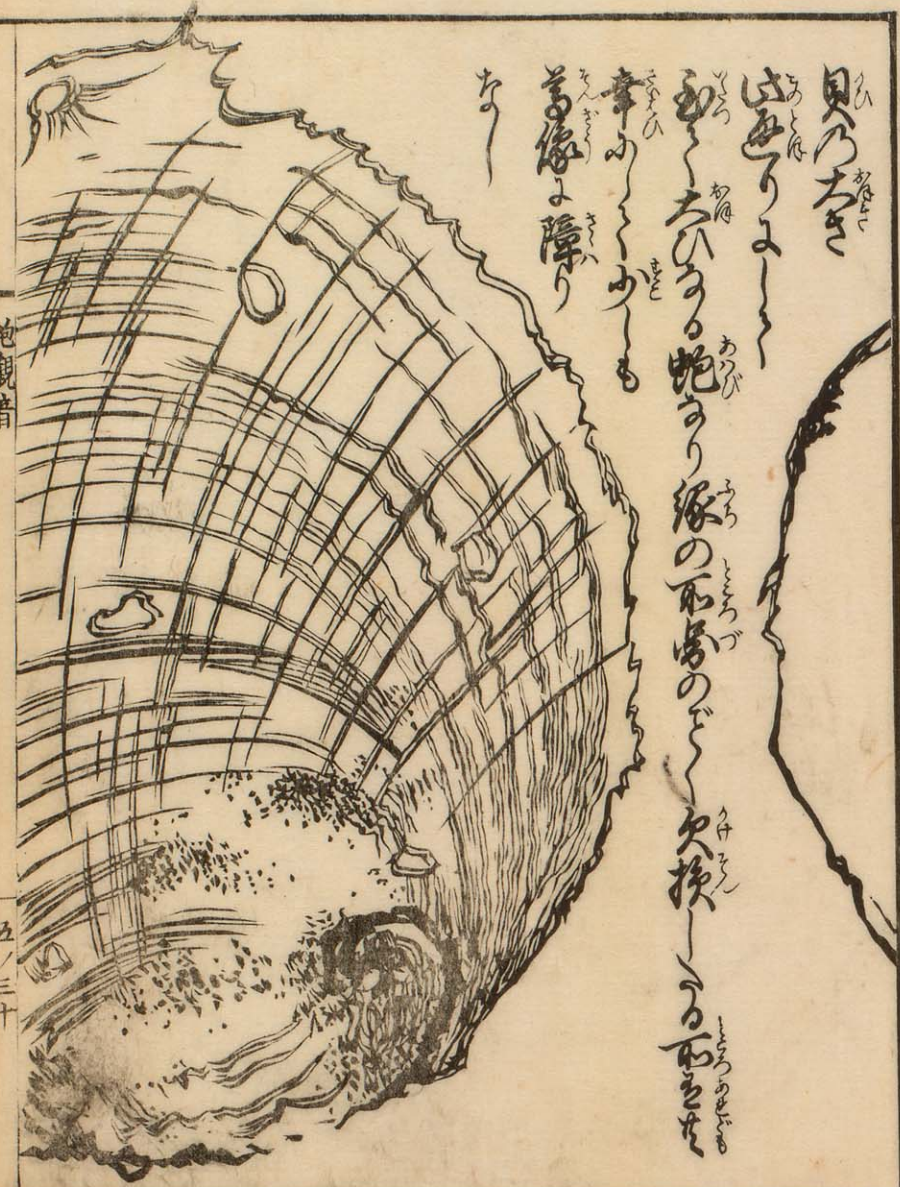 貝乃大き
此通りにして
至て大ひなる鮑なり縁の所圖のごとく欠損したる所有共
幸にして少しも
尊像に障り
なし
鮑観音
五ノ三十